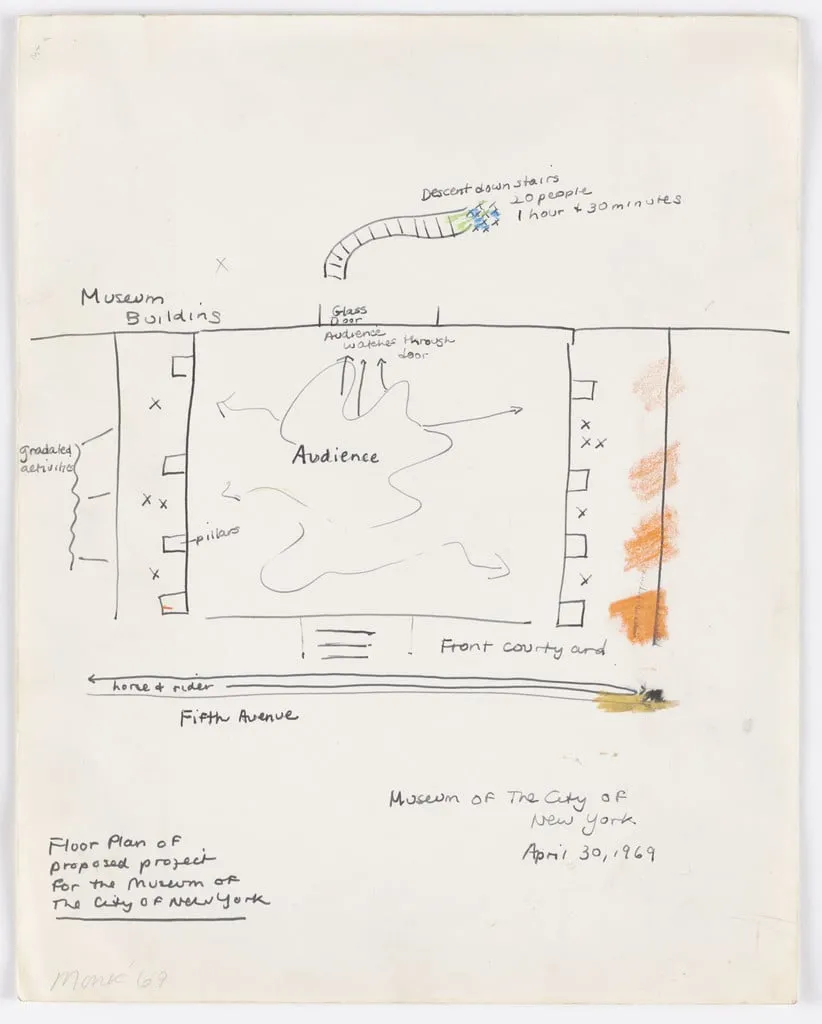 Descent down stairs
20 people
1 hour & 30 minutes
Museum
Building
Glass
Door
Audience
watches through
door
Audience
gradated
activities
pillars
Front courtyard
horse & rider
Fifth Avenue
Museum of The City of
New York
April 30, 1969
Floor Plan of
proposed project
for the Museum of
The City of New York
Monk '69